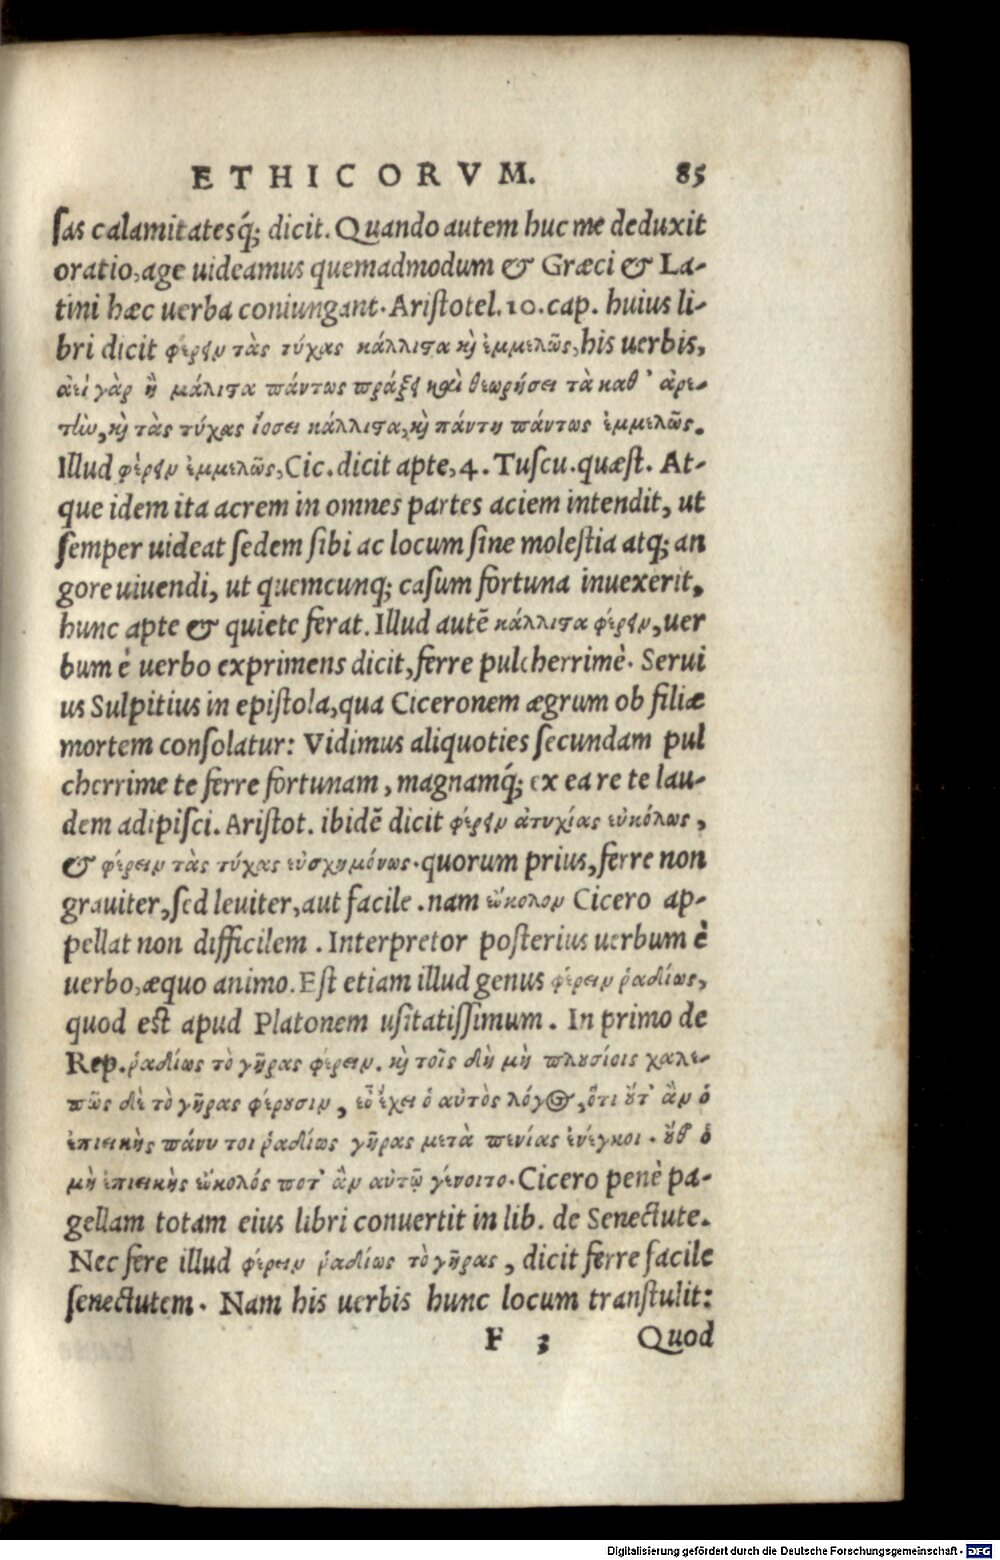 ETHICORVM. 85
ſas calamitatesq́; dicit. Quando autem huc me deduxit
oratio, age uideamus quemadmodum & Græci & La-
tini hæc uerba coniungant. Ariſtotel. 10. cap. huius li-
bri dicit φέρειν τὰς τύχας κάλλιϛα κὶ ἐμμελῶς, his uerbis,
ἀεὶ γὰρ ἢ μάλιϛα πάντως πράξει καὶ θεωρήσει τὰ καθ᾽ ἀρε-
τὼ, κὶ τὰς τύχας ἴοσει κάλλιϛα, κὶ πάντη πάντως ἐμμελῶς.
Illud φέρειν ἐμμελῶς, Cic. dicit apte, 4. Tuſcu. quæſt. At-
que idem ita acrem in omnes partes aciem intendit, ut
ſemper uideat ſedem ſibi ac locum ſine moleſtia atq; an
gore uiuendi, ut quemcunq; caſum fortuna inuexerit,
hunc apte & quiete ferat. Illud autē κάλλιϛα φέρειν, uer
bum è uerbo exprimens dicit, ferre pulcherrimè. Serui
us Sulpitius in epiſtola, qua Ciceronem ægrum ob filiæ
mortem conſolatur: Vidimus aliquoties ſecundam pul
cherrime te ferre fortunam, magnamq́; ex ea re te lau-
dem adipiſci. Ariſtot. ibidē dicit φέρειν ἀτυχίας εὐκόλως,
& φέρειν τὰς τύχας εὐσχημόνως. quorum prius, ferre non
grauiter, ſed leuiter, aut facile. nam εὔκολον Cicero ap-
pellat non difficilem. Interpretor poſterius uerbum è
uerbo, æquo animo. Eſt etiam illud genus φέρειν ῥαδίως,
quod eſt apud Platonem uſitatiſſimum. In primo de
Rep. ῥαδίως τὸ γῆρας φέρειν. κὶ τοῖς δὴ μὴ πλουσίοις χαλε-
πῶς δὲ τὸ γῆρας φέρουσιν, εὖ ἔχει ὁ αὐτὸς λόγος, ὅτι οὔτ᾽ ἂν ὁ
ἐπιεικὴς πάνυ τοι ῥαδίως γῆρας μετὰ πενίας ἐνέγκοι. οὔθ᾽ ὁ
μὴ ἐπιεικὴς εὔκολός ποτ᾽ ἂν αὐτῷ γένοιτο. Cicero penè pa-
gellam totam eius libri conuertit in lib. de Senectute.
Nec fere illud φέρειν ῥαδίως τὸ γῆρας, dicit ferre facile
ſenectutem. Nam his uerbis hunc locum tranſtulit:
F 3 Quod
Digitalisierung gefördert durch die Deutsche Forschungsgemeinschaft - DFG